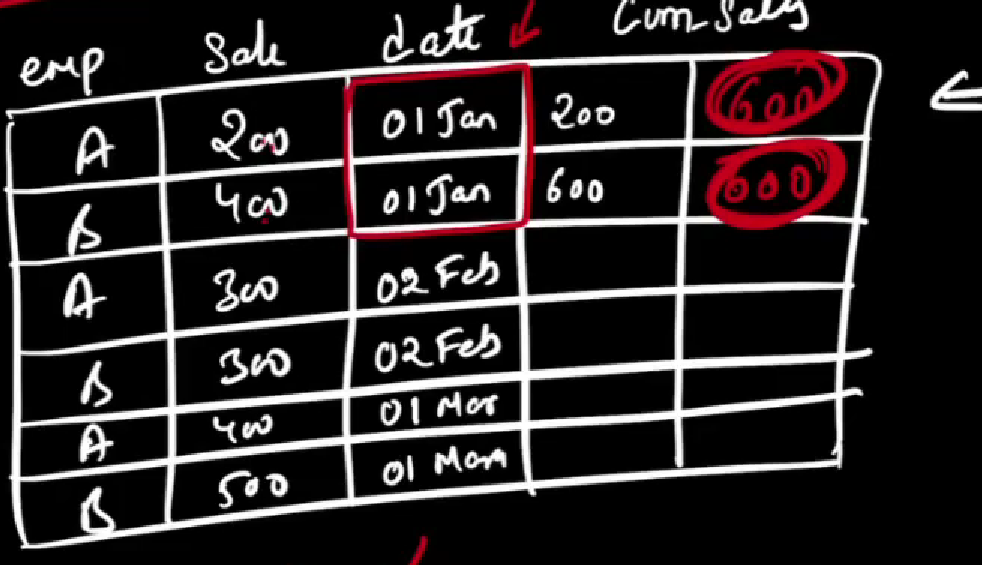 emp Sale date Cum_Sales
A 200 01 Jan 200 600
B 400 01 Jan 600 600
A 300 02 Feb
B 300 02 Feb
A 400 01 Mar
B 500 01 Mar